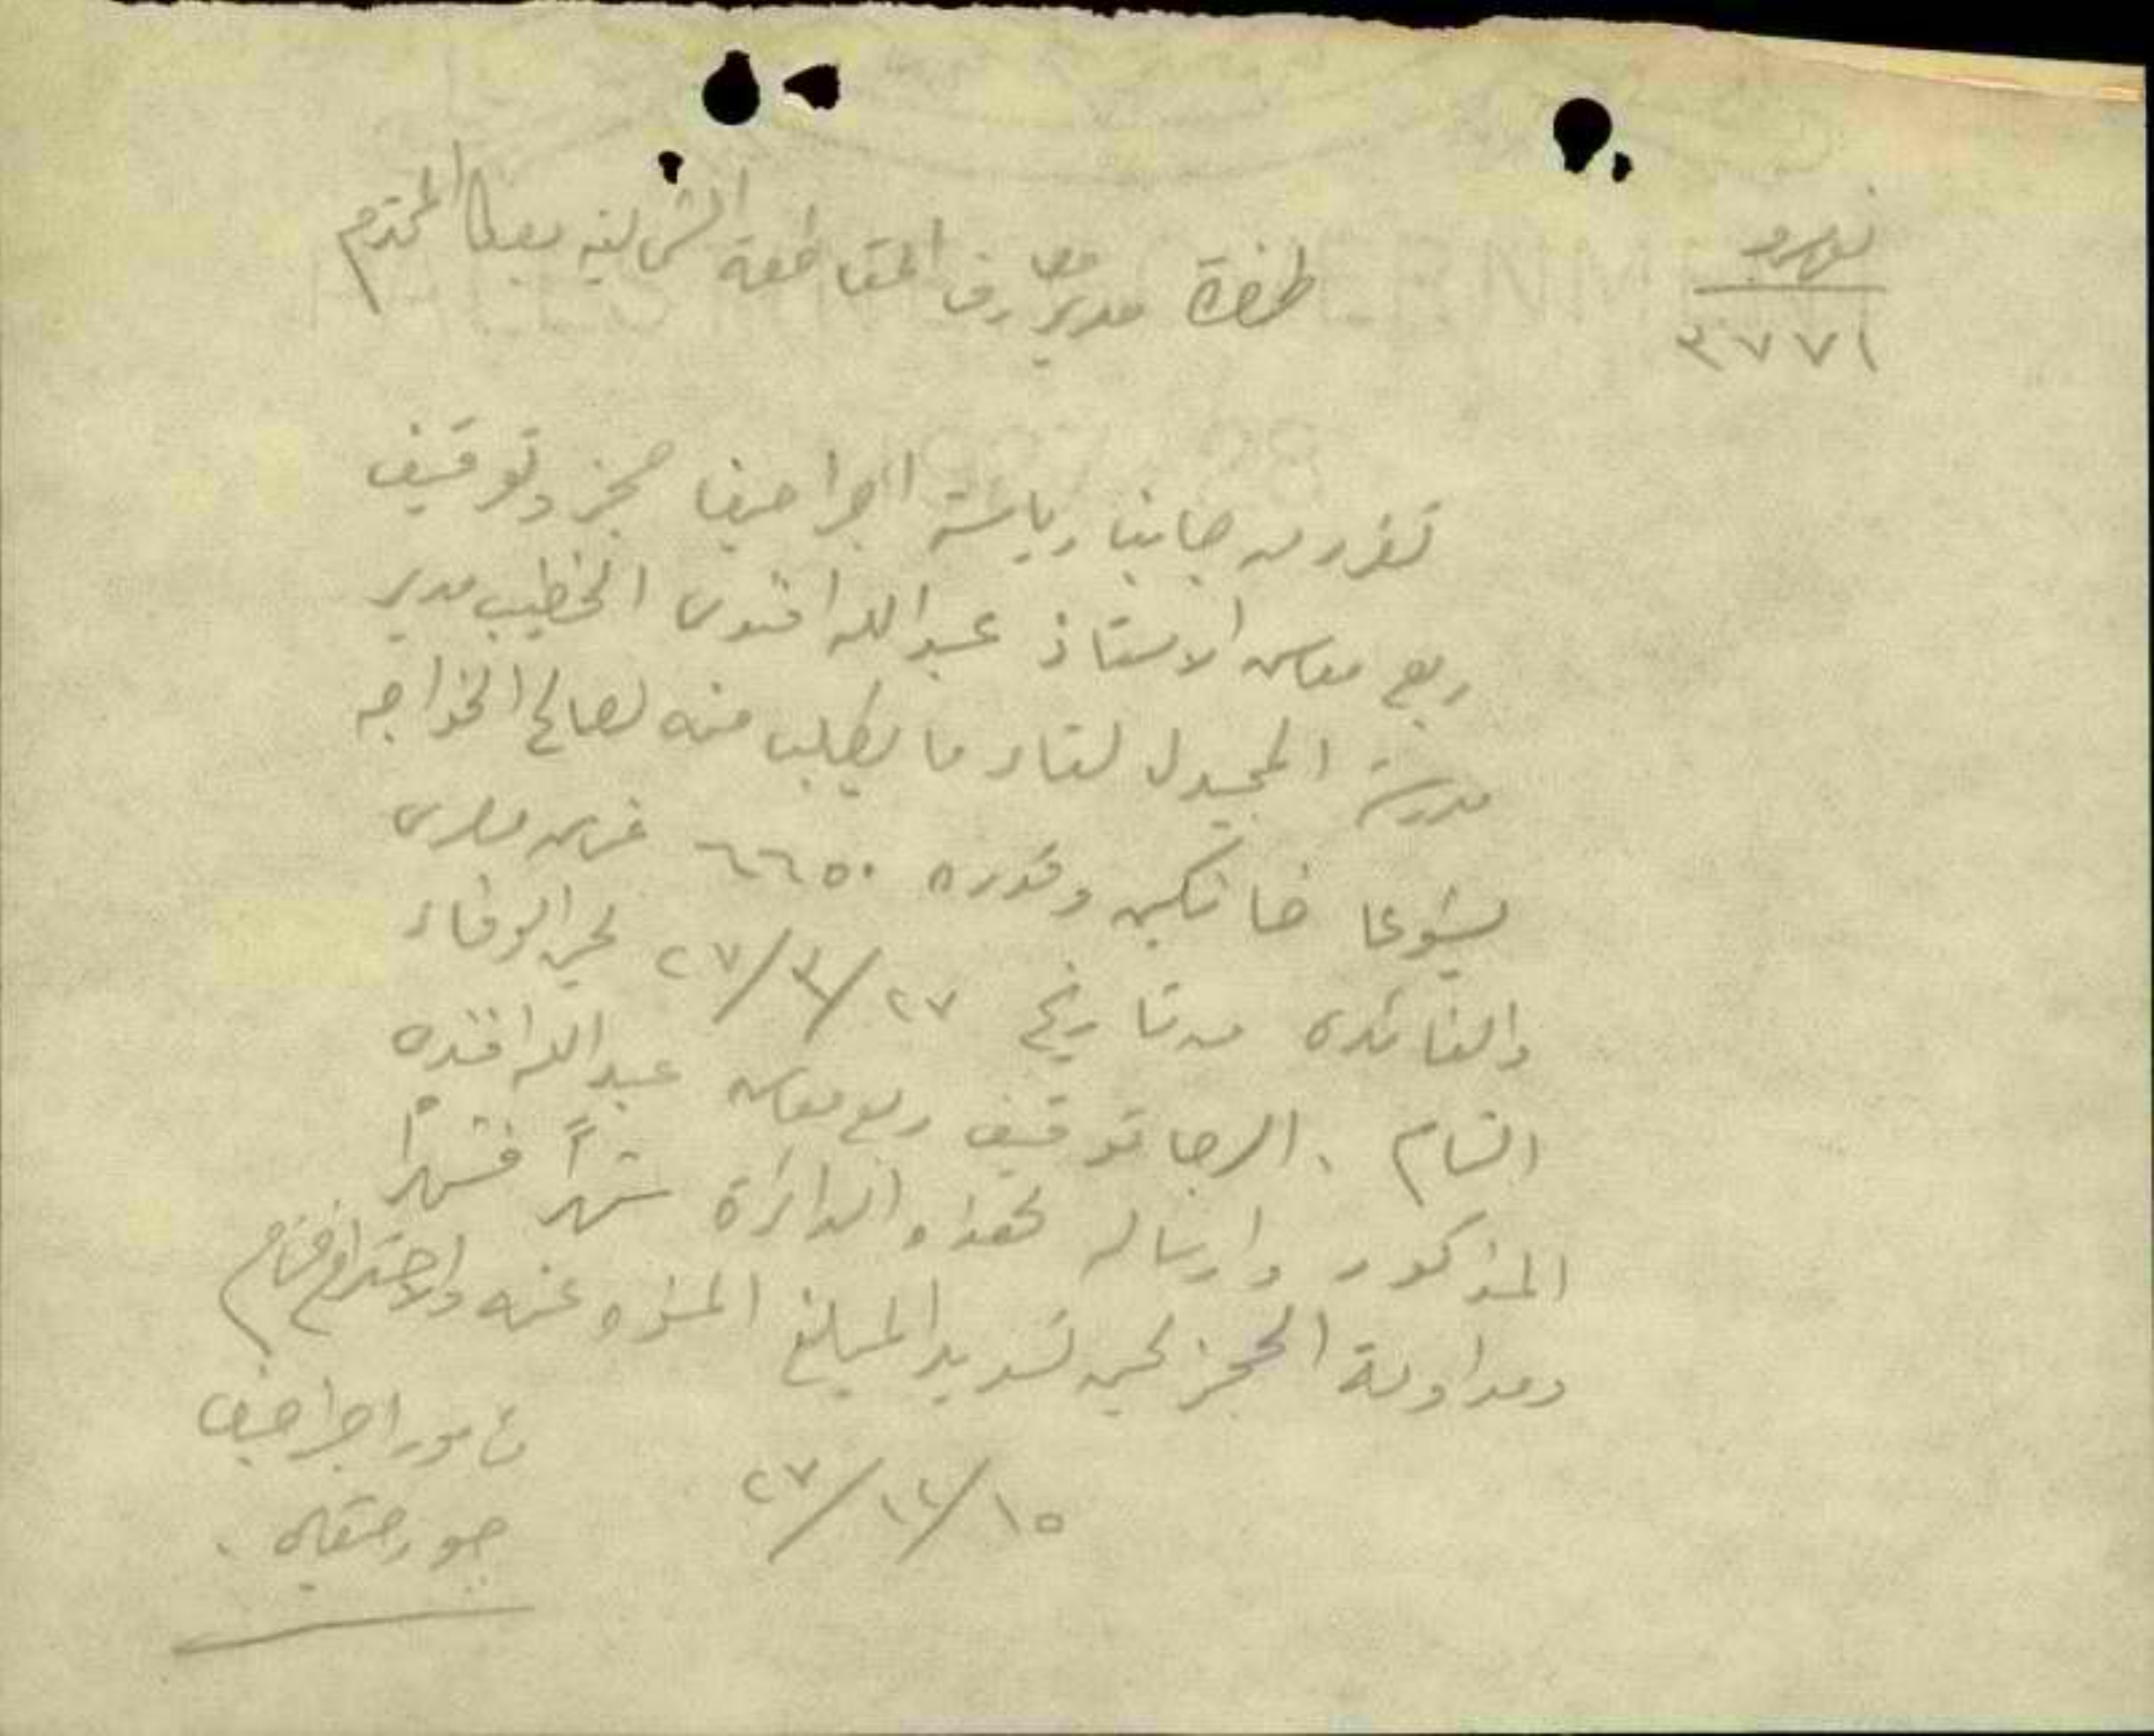 نومرو
٣٧٧١
حضرة مدير معارف المقاطعة الشمالية بعكا المحترم
تقرر من جانب رياسة اجرا حيفا حجز وتوقيف
ربع معاش الاستاذ عبدالله افندى الخطيب مدير
مدرسة المجيدل لقاء ما يطلب منه لصالح الخواجه
يشوعا خانكين وقدره ٦٦٥٠ غرش مصرى
والفائدى من تاريخ ٢٧/٣/٢٧ لحين الوفاء
التمام . الرجا توقيف ربع معاش عبدالله افنده
المذكور وارساله لهذه الدائرة شهراً فشهراً
ومداومة الحجز لحين تسديد المبلغ المنوه عنه والاحترام ختام
مامور اجرا حيفا
١٥/١٢/٢٧